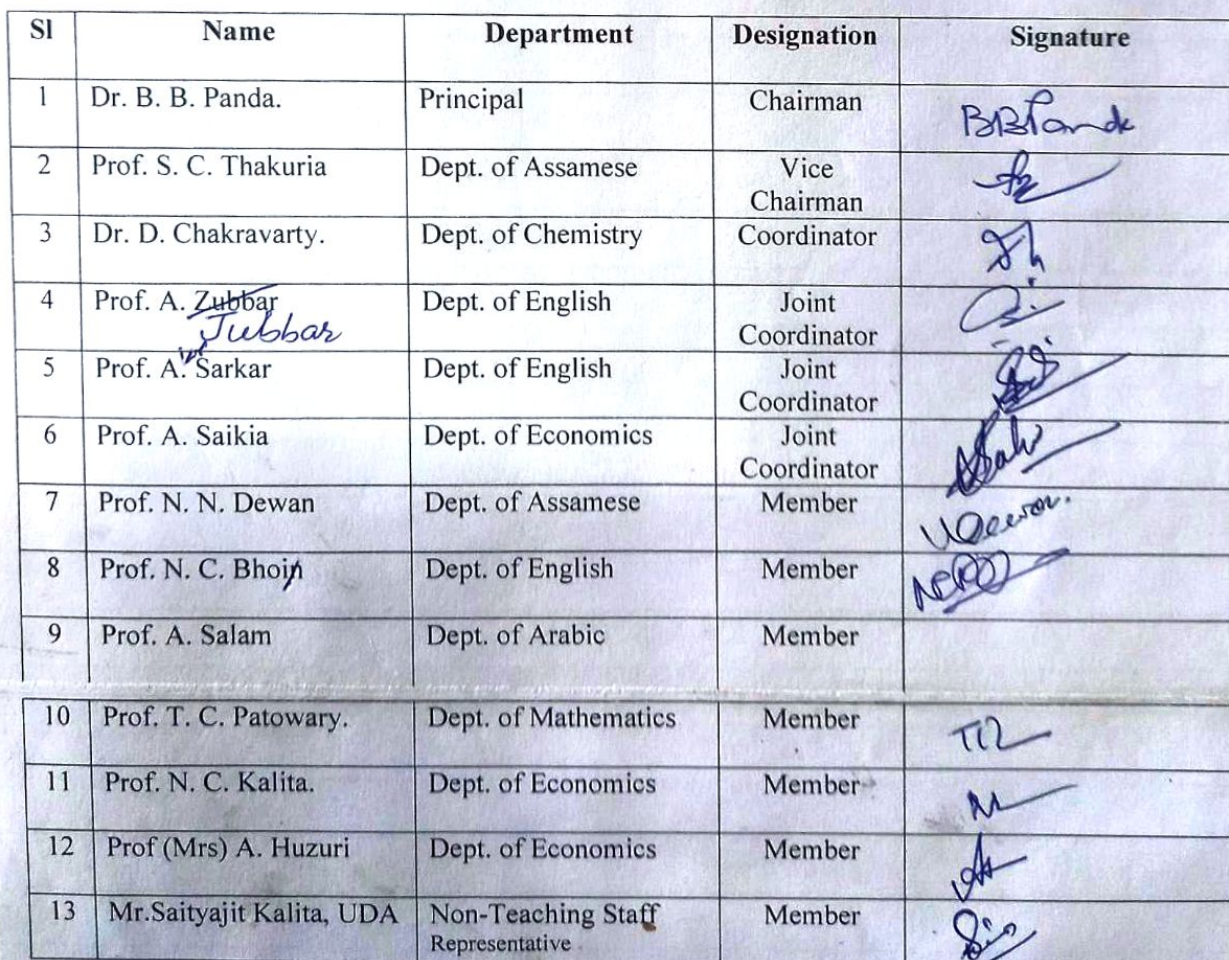 Sl Name Department Designation Signature
1 Dr. B. B. Panda. Principal Chairman BBPanda
2 Prof. S. C. Thakuria Dept. of Assamese Vice
Chairman
3 Dr. D. Chakravarty. Dept. of Chemistry Coordinator
4 Prof. A. Zubbar Dept. of English Joint
Jubbar Coordinator
5 Prof. A. Sarkar Dept. of English Joint
Coordinator
6 Prof. A. Saikia Dept. of Economics Joint
Coordinator
7 Prof. N. N. Dewan Dept. of Assamese Member
8 Prof. N. C. Bhoin Dept. of English Member
9 Prof. A. Salam Dept. of Arabic Member
10 Prof. T. C. Patowary. Dept. of Mathematics Member
11 Prof. N. C. Kalita. Dept. of Economics Member
12 Prof (Mrs) A. Huzuri Dept. of Economics Member
13 Mr.Saityajit Kalita, UDA Non-Teaching Staff Member
Representative